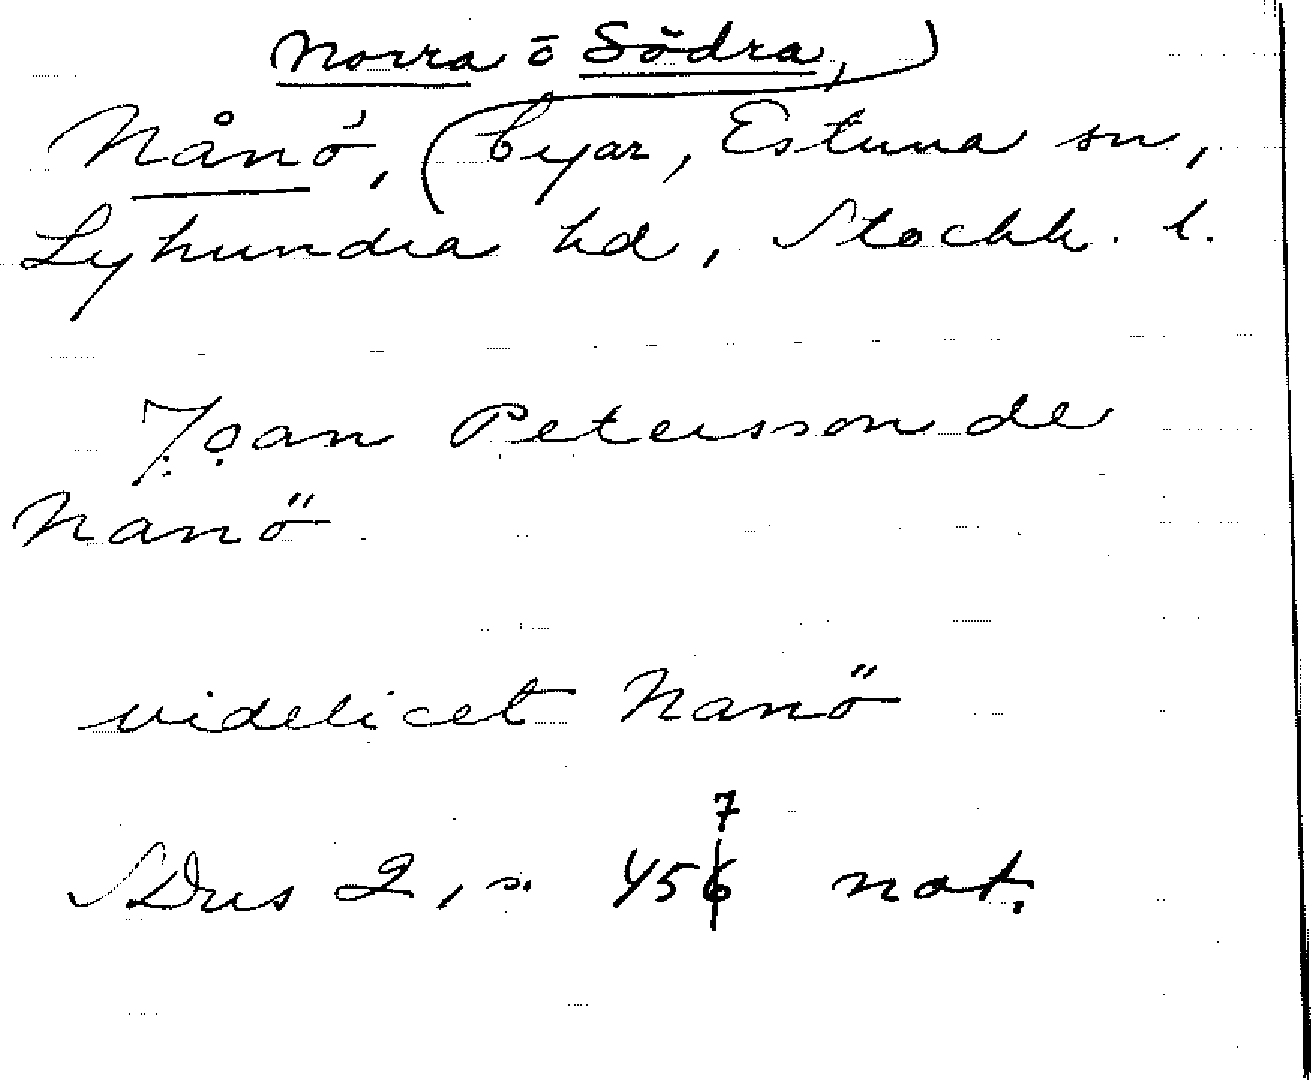 Norra ō Södra,
Nånö, (byar, Estuna sn,
Lyhundra hd, Stockh. l.
Joan Petersson de
Nanö
videlicet Nanö
SDns 2, s. 457 not.